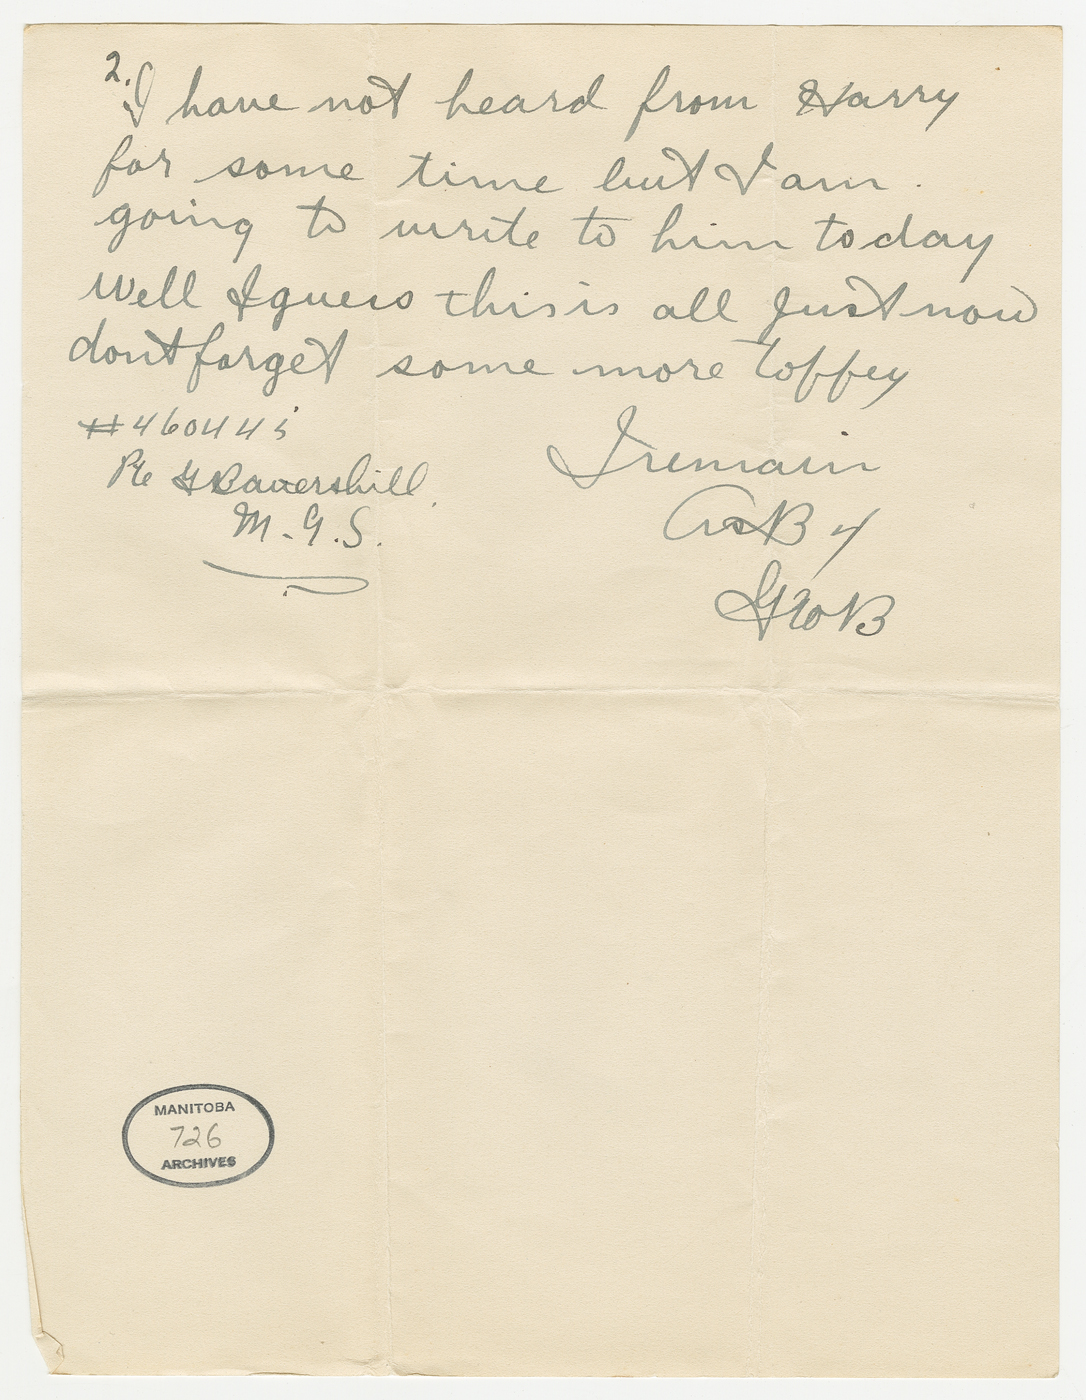 2.
I have not heard from Harry
for some time but I am.
going to write to him today
Well I guess this is all Just now
dont forget some more toffey
#460445
Pte G Bavershill.
M.G.S.
I remain
As B 4
Geo B
MANITOBA
726
ARCHIVES